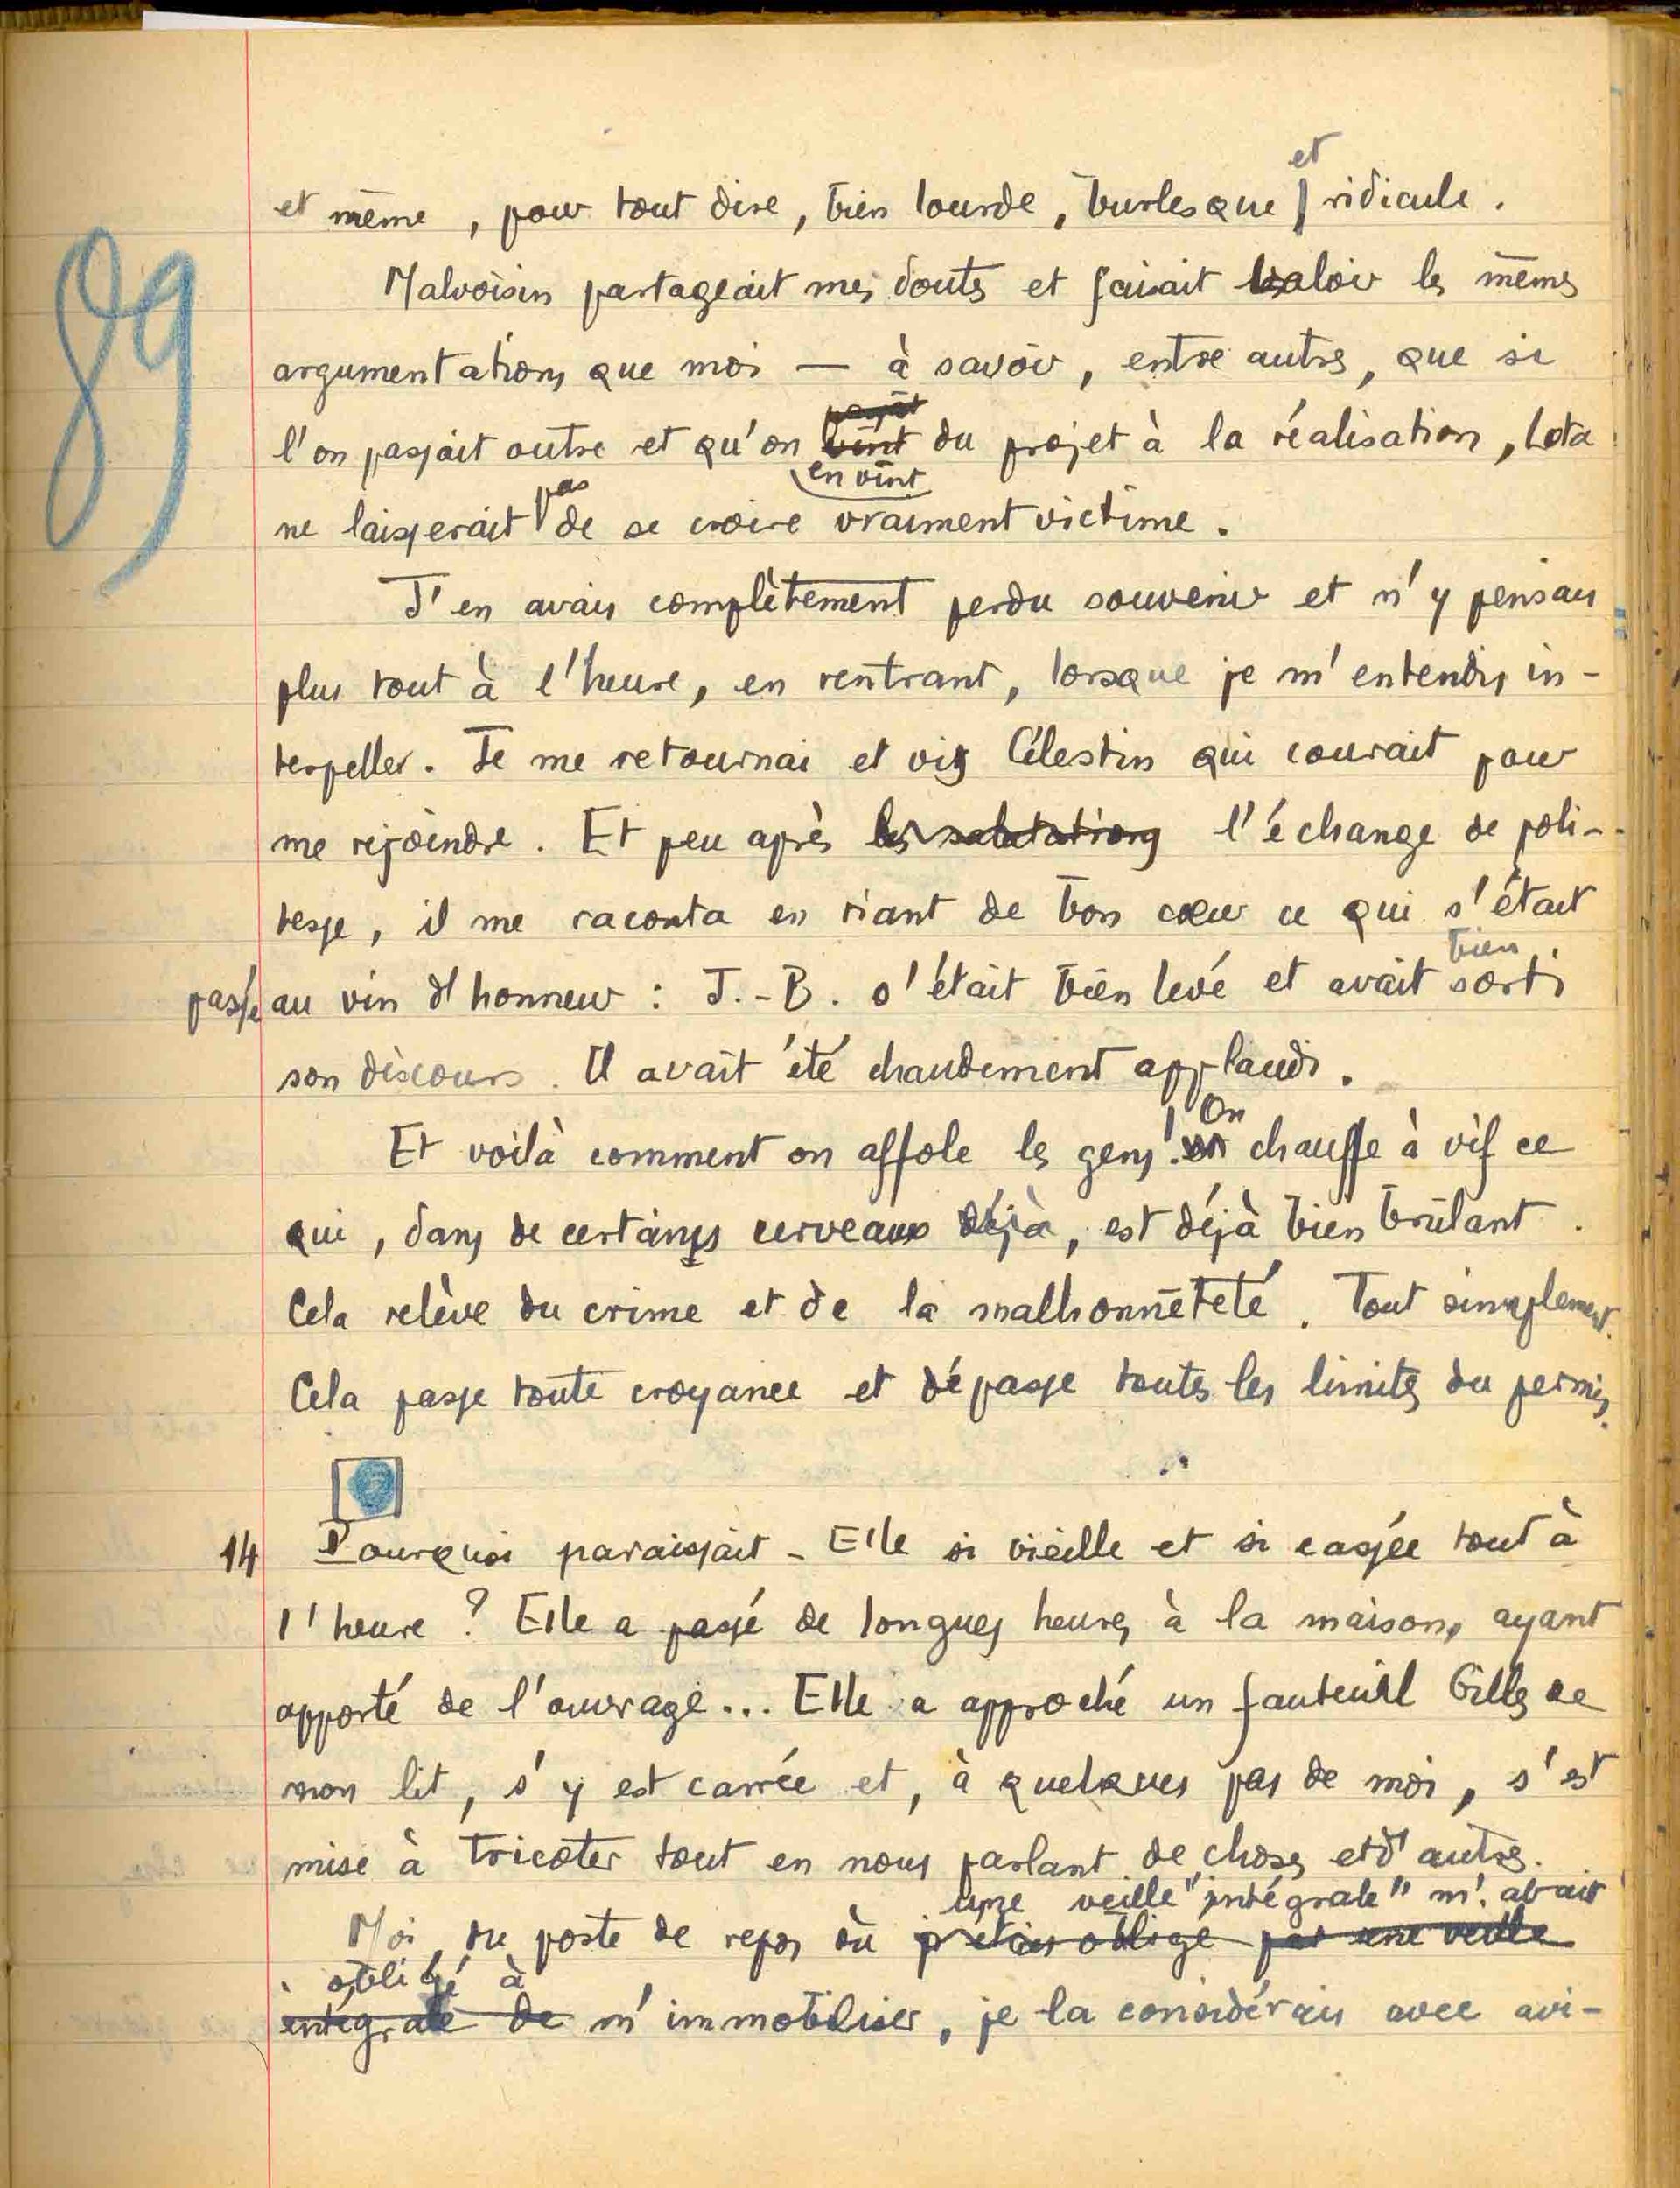 89
et
et même, pour tout dire, bien lourde, burlesque ridicule.
Malvoisin partageait mes doutes et faisait valoir les mêmes
argumentations que moi — à savoir, entre autres, que si
passât
l'on passait outre et qu'on vînt du projet à la réalisation, Lota
en vînt
pas
ne laisserait de se croire vraiment victime.
J'en avais complètement perdu souvenir et n'y pensais
plus tout à l'heure, en rentrant, lorsque je m'entendis in-
terpeller. Je me retournai et vis Célestin qui courait pour
me rejoindre. Et peu après les salutations l'échange de poli-
tesse, il me raconta en riant de bon cœur ce qui s'était
bien
passé au vin d'honneur : J.-B. s'était bien levé et avait sorti
son discours. Il avait été chaudement applaudi.
On
Et voilà comment on affole les gens! on chauffe à vif ce
qui, dans de certains cerveaux déjà, est déjà bien brûlant.
Cela relève du crime et de la malhonnêteté. Tout simplement.
Cela passe toute croyance et dépasse toutes les limites du permis.
14 Pourquoi paraissait-Elle si vieille et si cassée tout à
l'heure ? Elle a passé de longues heures à la maison, ayant
apporté de l'ouvrage... Elle a approché un fauteuil Gilles de
mon lit, s'y est carrée et, à quelques pas de moi, s'est
mise à tricoter tout en nous parlant de choses et d'autres.
une veille "intégrale" m'avait
Moi, du poste de repos où j'étais obligé par une veille
obligé à
intégrale de m'immobiliser, je la considérais avec avi-